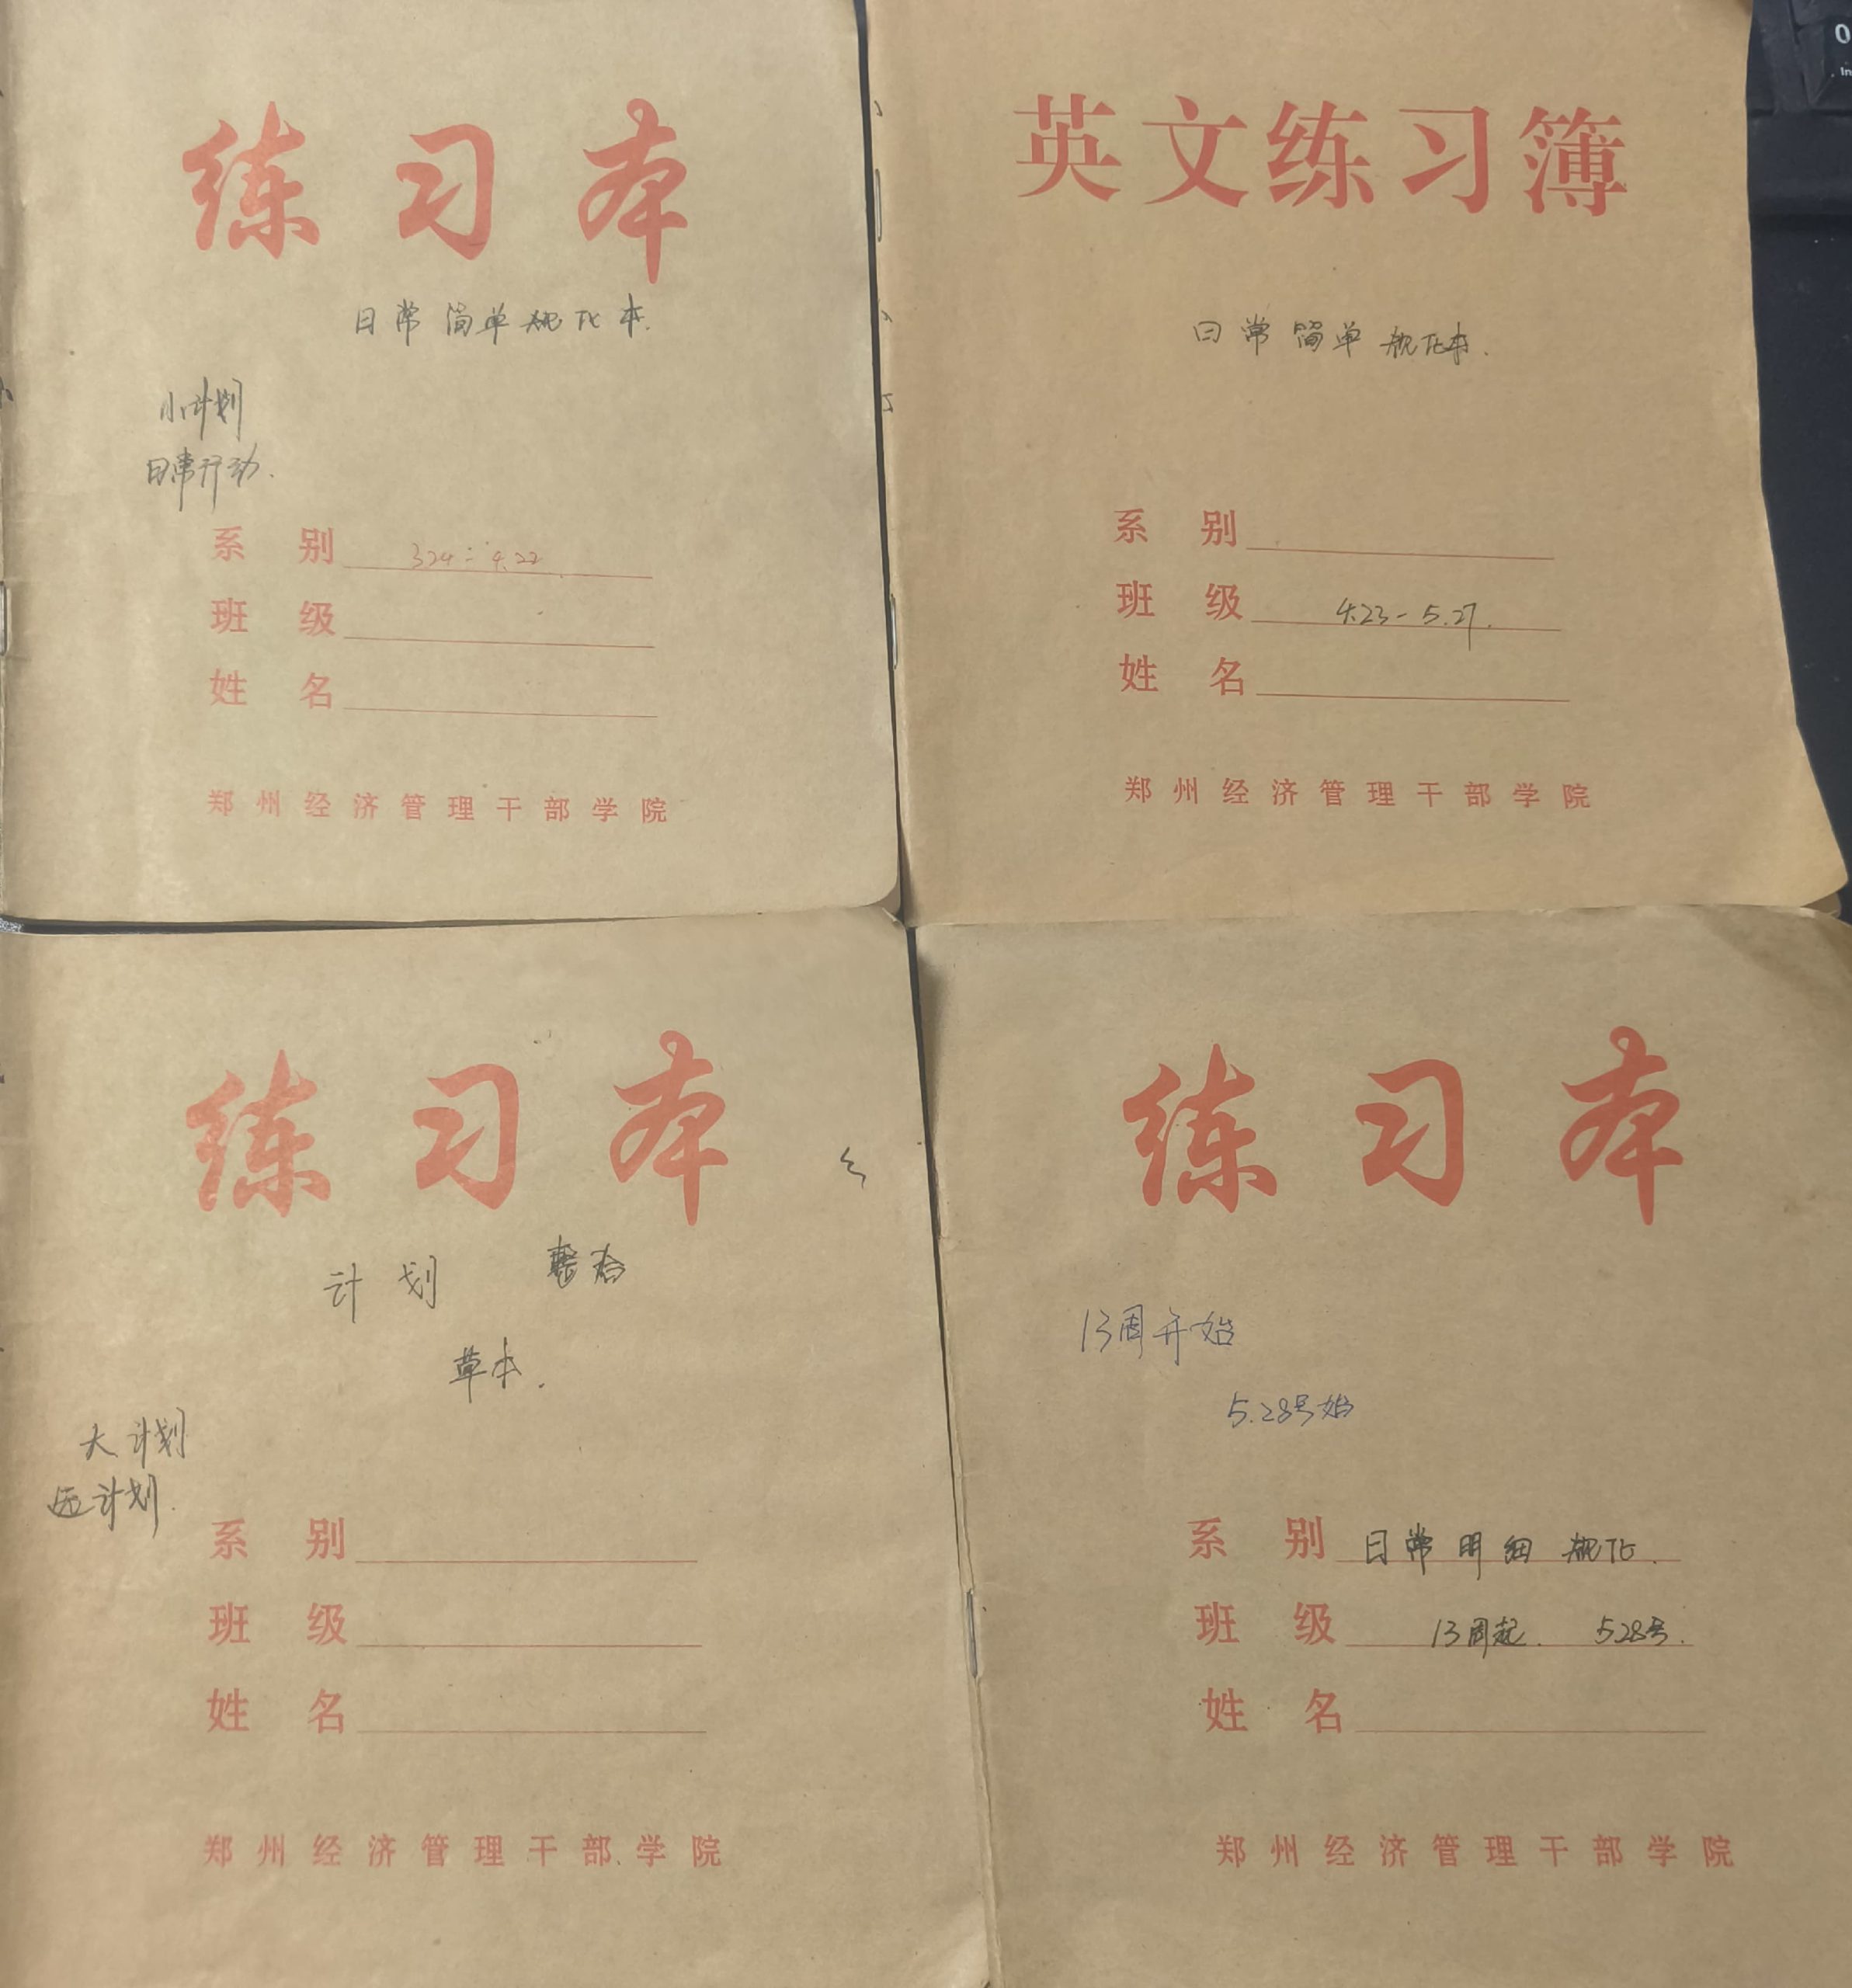 练习本
日常简单规化本.
小计划
日常行动.
系别 324 - 4.22
班级
姓名
郑州经济管理干部学院
英文练习簿
日常简单规化本.
系别
班级 4.23 - 5.27.
姓名
郑州经济管理干部学院
练习本
计划
草本.
大计划
远计划.
系别
班级
姓名
郑州经济管理干部学院
练习本
13周开始
5.28号始
系别 日常明细规化.
班级 13周起. 528号.
姓名
郑州经济管理干部学院